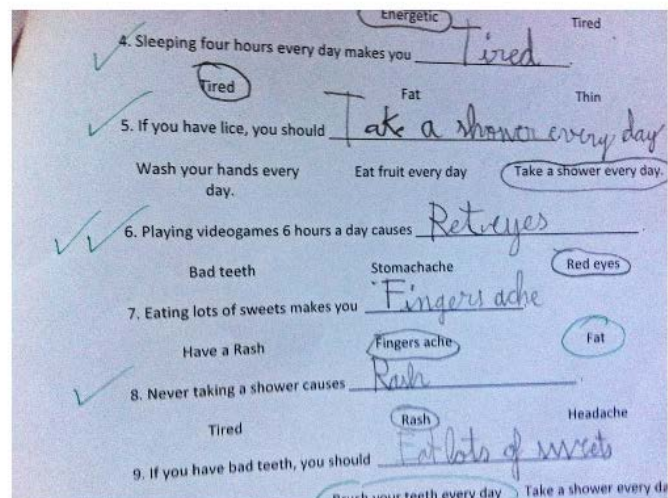 Energetic Tired
4. Sleeping four hours every day makes you Tired.
Tired Fat Thin
5. If you have lice, you should Take a shower every day
Wash your hands every day. Eat fruit every day Take a shower every day.
6. Playing videogames 6 hours a day causes Ret eyes
Bad teeth Stomachache Red eyes
7. Eating lots of sweets makes you Fingers ache
Have a Rash Fingers ache Fat
8. Never taking a shower causes Rash.
Tired Rash Headache
9. If you have bad teeth, you should Eat lots of sweets
your teeth every day Take a shower every